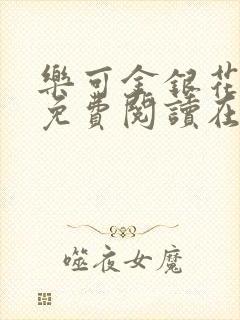 樂可金銀花
免費閱讀在
噬夜女魔